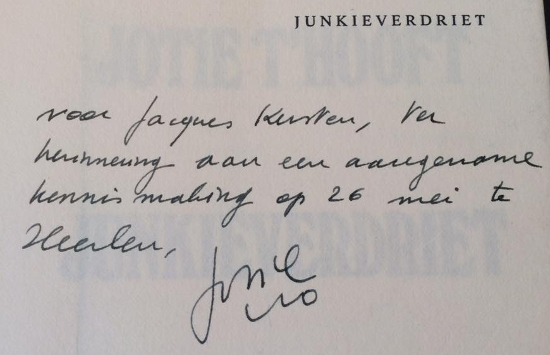 JUNKIEVERDRIET
JOTIE T'HOOFT
voor Jacques Kersten, ter
herinnering aan een aangename
kennismaking op 26 mei te
Heerlen,
Jotie
JUNKIEVERDRIET